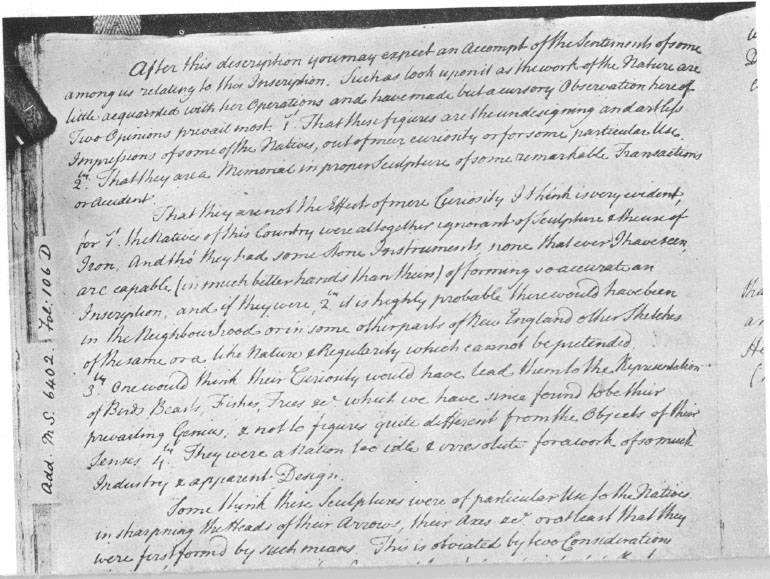 After this description you may expect an Accompt of the Sentiments of some
among us relating to this Inscription. Such as look upon it as the work of the Nature are
little acquainted with her Operations and have made but a cursory Observation hereof
Two Opinions prevail most. 1st. That these figures are the undesigning and artless
Impressions of some of the Natives, out of meer curiosity or for some particular Use.
2ly. That they are a Memorial in proper Sculpture of some remarkable Transactions
or Accident.
That they are not the Effect of mere Curiosity I think is very evident,
for 1st. the Natives of this Country were altogether ignorant of Sculpture & the use of
Iron, And tho' they had some Stone Instruments, none that ever I have seen,
are capable (in much better hands than theirs) of forming so accurate an
Inscription, and if they were, 2ly it is highly probable there would have been
in the Neighbourhood or in some other parts of New England other Sketches
of the same or a like Nature & Regularity which cannot be pretended.
3ly. One would think their Curiosity would have lead them to the Representation
of Birds Beasts, Fishes, Trees &c which we have since found to be their
prevailing Genius, & not to figures quite different from the Objects of their
Senses 4ly. They were a Nation too idle & irresolute for a work of so much
Industry & apparent Design.
Some think these Sculptures were of particular Use to the Natives
in sharpning the Heads of their Arrows, their Axes &c or at least that they
were first found by such means. This is obviated by two Considerations
Add. M.S. 6402. fol: 106 D